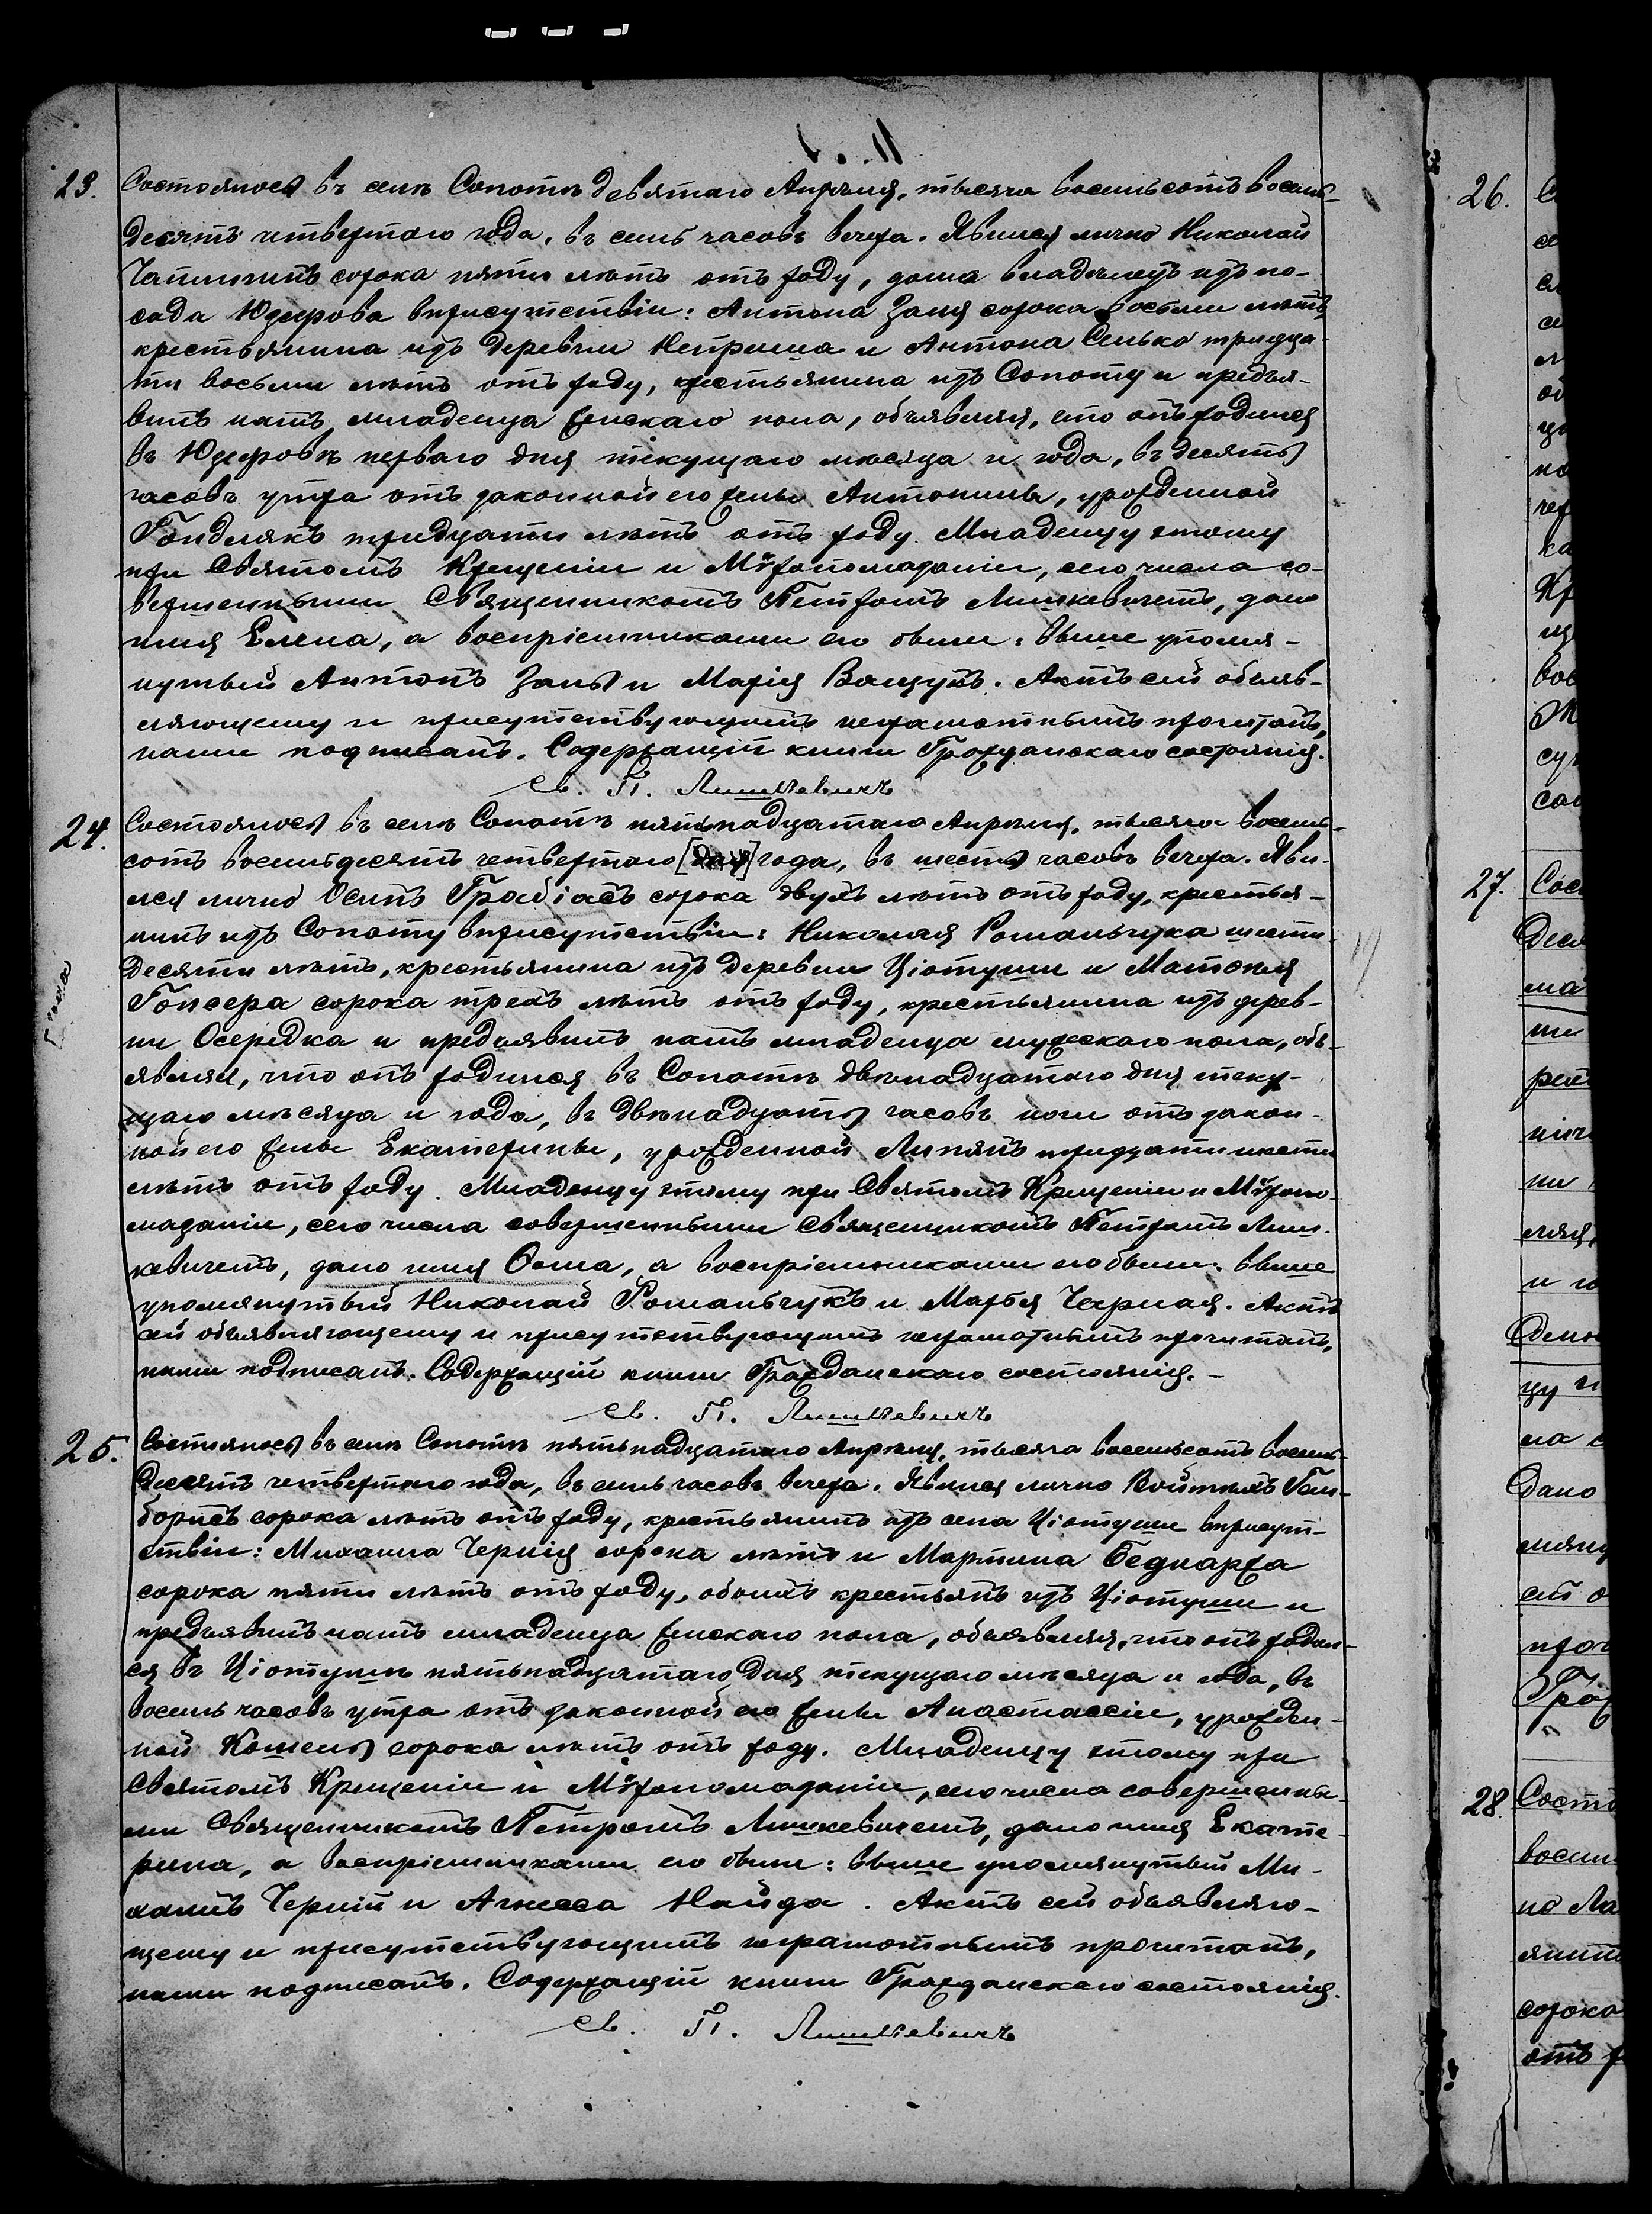 23.
Состоялось въ селѣ Сопотѣ девятаго Апрѣля, тысяча восемьсотъ восемь-
десятъ четвертаго года, въ семь часовъ вечера. Явился лично Николай
сорока пяти лѣтъ отъ роду, дома владѣлецъ изъ по-
сада Юзефова вприсутствіи: Антона Заня сорока восьми лѣтъ
крестьянина изъ деревни Неприша и Антона Сенько тридца-
ти восьми лѣтъ отъ роду, крестьянина изъ Сопоту и предъя-
вилъ намъ младенца женскаго пола, объявляя, что онъ родился
въ Юзефовѣ перваго дня текущаго мѣсяца и года, въ десять
часовъ утра отъ законной его жены Антонины, урожденной
тридцати лѣтъ отъ роду. Младенцу этому
при Святомъ Крещеніи и Мѵропомазаніи, сего числа со-
вершенными Священникомъ Петромъ Лишкевичемъ, дано
имя Елена, а воспріемниками его были: выше упомя-
нутый Антонъ Зань и Марія Ващукъ. Актъ сей объяв-
ляющему и присутствующимъ неграмотнымъ прочитанъ,
нами подписанъ. Содержащій книги Гражданскаго состоянія.
Св. П. Лишкевичъ
24.
Состоялось въ селѣ Сопотѣ пятьнадцатаго Апрѣля, тысяча восемь-
сотъ восемьдесятъ четвертаго [дня] года, въ шесть часовъ вечера. Яви-
лся лично Осипъ Грабіасъ сорока двухъ лѣтъ отъ роду, крестья-
нинъ изъ Сопоту вприсутствіи: Николая Романьчука шести-
десяти лѣтъ, крестьянина изъ деревни Ціотуши и
Гонсера сорока трехъ лѣтъ отъ роду, крестьянина изъ дерев-
ни Осередка и предъявилъ намъ младенца мужескаго пола, объ-
являя, что онъ родился въ Сопотѣ двѣнадцатаго дня теку-
щаго мѣсяца и года, въ двѣнадцать часовъ ночи отъ закон-
ной его жены Екатерины, урожденной Липянъ тридцати шести
лѣтъ отъ роду. Младенцу этому при Святомъ Крещеніи и Мѵропо-
мазаніи, сего числа совершенными Священникомъ Петромъ Лиш-
кевичемъ, дано имя Ѳома, а воспріемниками его были: выше
упомянутый Николай Романьчукъ и Марья Черная. Актъ
сей объявляющему и присутствующимъ неграмотнымъ прочитанъ,
нами подписанъ. Содержащій книги Гражданскаго состоянія.-
Св. П. Лишкевичъ
25.
Состоялось въ селѣ Сопотѣ пятьнадцатаго Апрѣля, тысяча восемьсотъ восемь-
десятъ четвертаго года, въ семь часовъ вечера. Явился лично Войтѣхъ Гем-
борысъ сорока лѣтъ отъ роду, крестьянинъ изъ села Ціотуши вприсут-
ствіи: Михаила Чернія сорока лѣтъ и Мартина Беднаржа
сорока пяти лѣтъ отъ роду, обоихъ крестьянъ изъ Ціотуши и
предъявилъ намъ младенца женскаго пола, объявляя, что онъ родил-
ся въ Ціотушѣ пятьнадцатаго дня текущаго мѣсяца и года, въ
восемь часовъ утра отъ законной его жены Анастассіи, урожден-
ной Комень сорока лѣтъ отъ роду. Младенцу этому при
Святомъ Крещеніи и Мѵропомазаніи, сего числа совершенны-
ми Священникомъ Петромъ Лишкевичемъ, дано имя Екате-
рина, а воспріемниками его были: выше упомянутый Ми-
хаилъ Черній и Агнесса Найда. Актъ сей объявляю-
щему и присутствующимъ неграмотнымъ прочитанъ,
нами подписанъ. Содержащій книги Гражданскаго состоянія.
Св. П. Лишкевичъ
26.
27.
28.